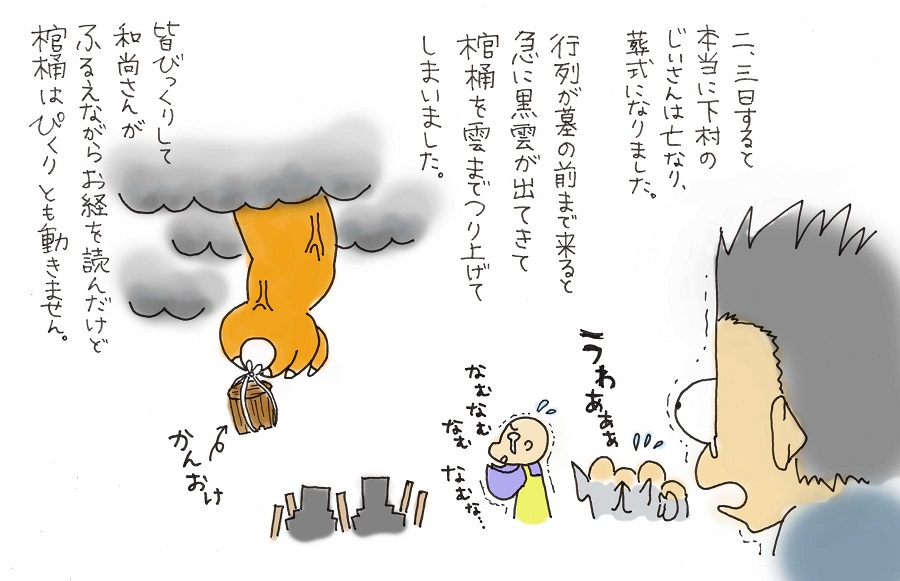 二、三日すると
本当に下村の
じいさんは亡なり、
葬式になりました。
行列が墓の前まで来ると
急に黒雲が出てきて
棺桶を雲までつり上げて
しまいました。
皆びっくりして
和尚さんが
ふるえながらお経を読んだけど
棺桶はぴくりとも動きません。
うわぁぁぁ
なむなむ
なむ
なむな…
かんおけ